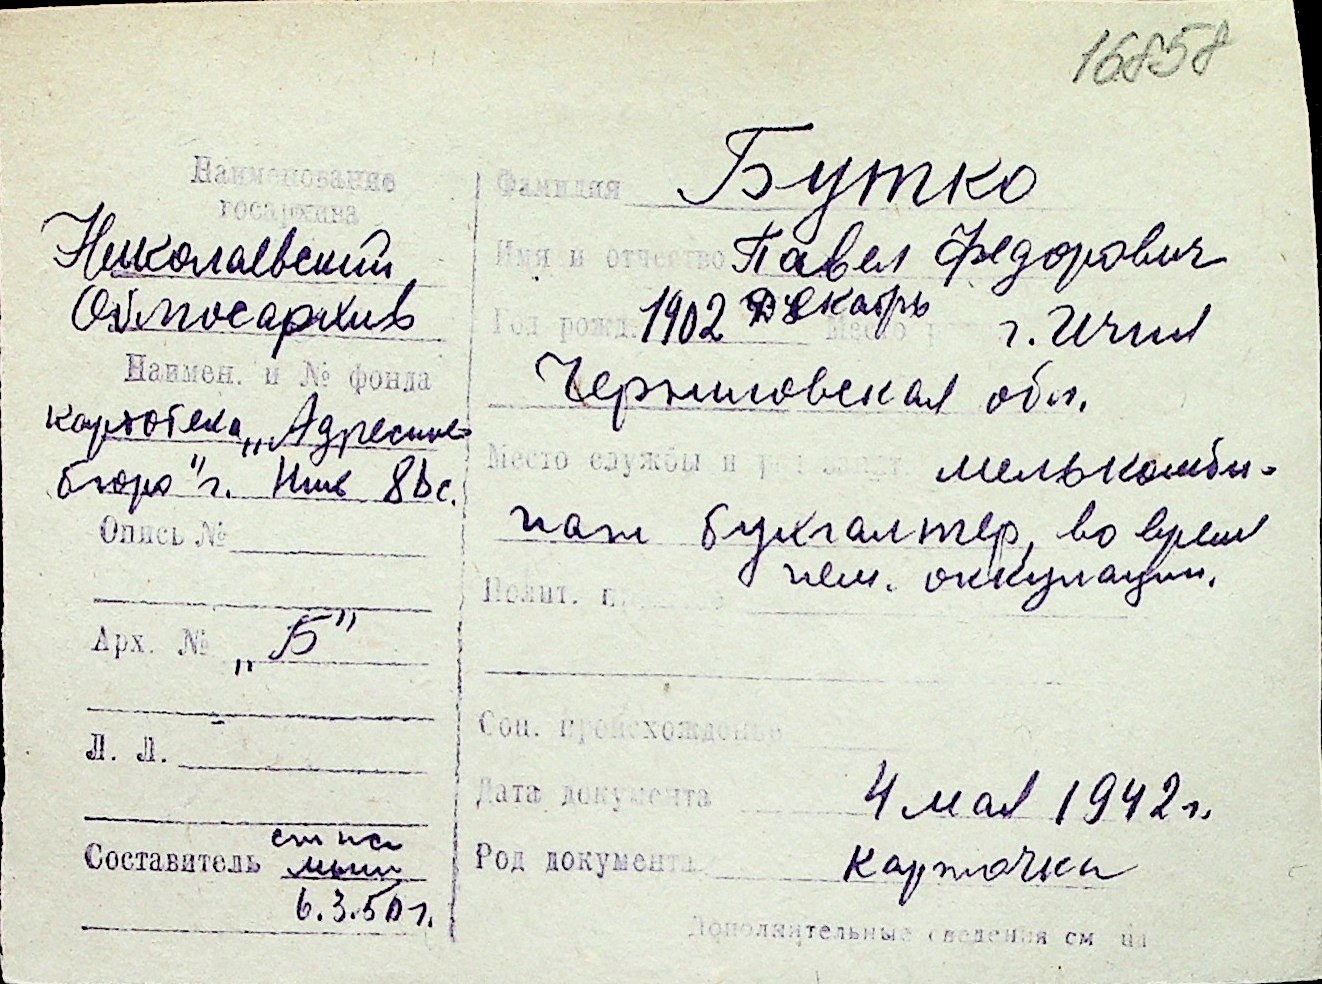 16858
Наименование
госархива
Николаевский
Облгосархив
Наимен. и № фонда
картотека „Адресное
бюро" г. Ник
Опись №
Арх. № „Б"
Л. Л.
Составитель
6.3.50 г.
Фамилия Бутко
Имя и отчество Павел Федорович
Год рожд. 1902 Декабрь Место р г. Ичня
Черниговская обл.
Место службы и мелькомби-
нат бухгалтер, во время
нем. оккупации.
Полит.
Соц. происхождение
Дата документа 4 мая 1942 г.
Род документа карточка
Дополнительные сведения см на